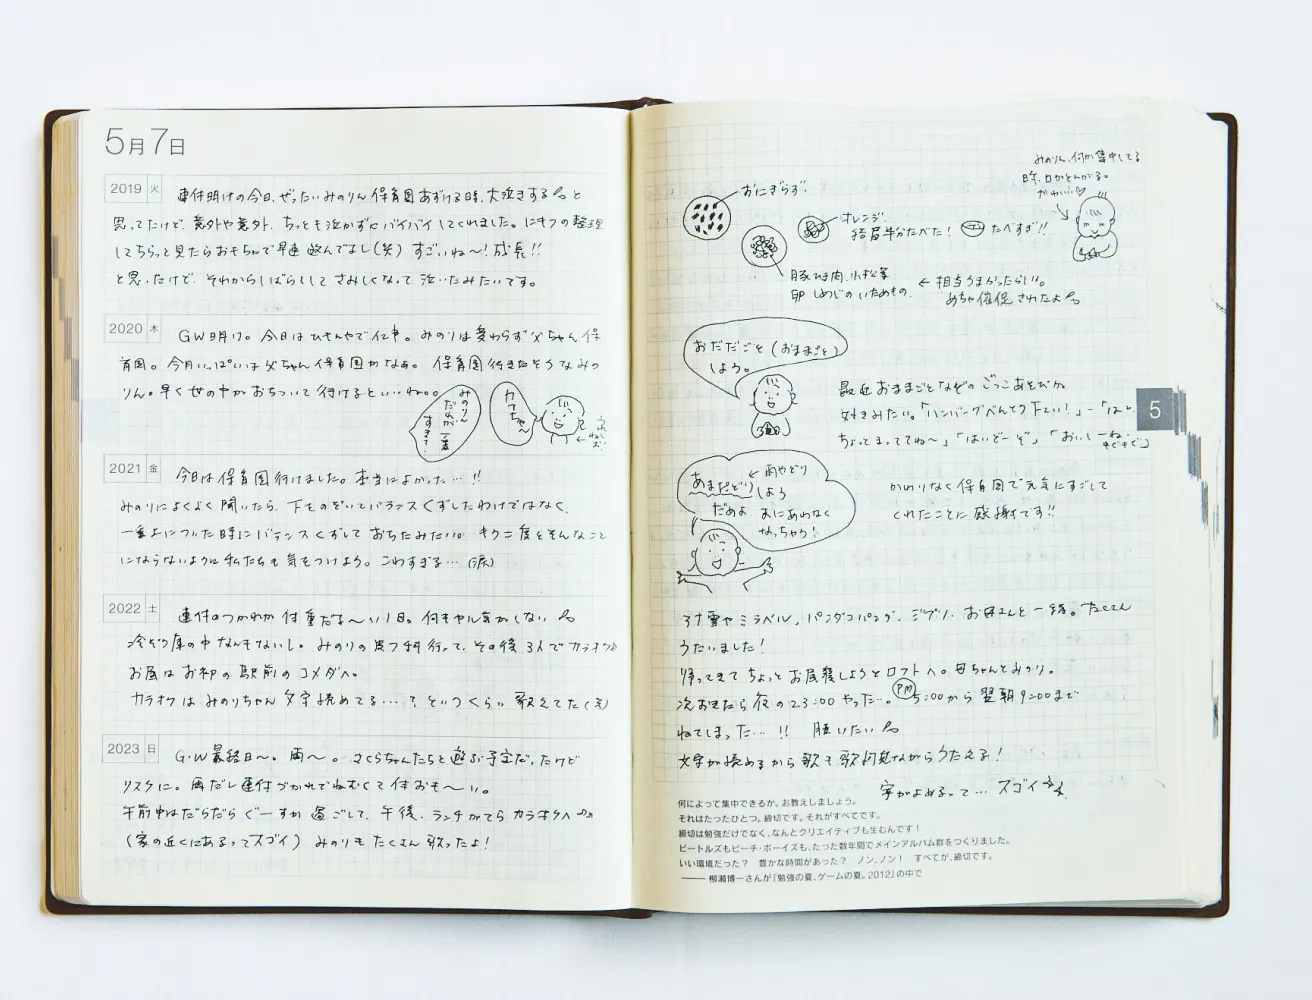 5月7日
2019 火
連休明けの今日、ぜったいみのりん保育園あずける時、大泣きする と
思ってたけど、意外や意外、ちっとも泣かずにバイバイしてくれました。にもつの整理
してちらっと見たらおもちゃで早速遊んでるし(笑) すごいね〜!成長!!
と思ったけど、それからしばらくしてさみしくなって、泣いたみたいです。
2020 木
GW明け。今日は で仕事。みのりは変わらず父ちゃん保
育園。今月いっぱいは父ちゃん保育園かなぁ。保育園行きたそうなみの
りん。早く世の中がおちついて行けるといいね。。
みのりん だれが一番 すき?
カアちゃん
2021 金
今日は保育園行けました。本当によかった…!!
みのりによくよく聞いたら、下をのぞいてバランスくずしたわけではなく、
一番上についた時にバランスくずしておちたみたい。もう二度とそんなこと
にならないように私たちも気をつけよう。こわすぎる…(涙)
2022 土
連休のつかれか体重だる〜い1日。何もやる気がしない
冷ぞう庫の中なんもないし。みのりの 科行って、その後3人でカラオケ♪
お昼はお初の駅前のコメダへ。
カラオケはみのりちゃん文字読めてる…?というくらい歌えてた(笑)
2023 日
G.W最終日〜。雨〜。さくらちゃんたちと遊ぶ予定だったけど
リスケに。雨だし連休づかれでねむくて体おも〜い。
午前中はだらだらぐーすか過ごして、午後、ランチがてらカラオケへ♪♪
(家の近くにあるってスゴイ) みのりもたくさん歌ったよ!
みのりん、何か集中してる
時、口がとんがる。
かわいい♡
おにぎらず。
オレンジ。
結局半分たべた! たべすぎ!!
豚ひき肉、小松菜
卵 しめじのいためもの。
← 相当うまかったらしい。
めちゃ催促されたよ
おだだごと(おままごと)
しよう。
最近おままごとなどのごっこあそびが
好きみたい。「ハンバーグべんとう下さい!」「はい、
ちょっとまっててね〜」「はいどーぞ」「おいしーね。
もぐもぐ」
5
あまだどり ← 雨やどり
しよう
だめよ まにあわなく
なっちゃう!
かわりなく保育園で元気にすごして
くれたことに感謝です!!
アナ雪やミラベル、パンダコパンダ、ジブリ、お母さんと一緒。たくさん
うたいました!
帰ってきてちょっとお昼寝しようとロフトへ。母ちゃんとみのり。
次おきたら夜の23:00やった…。PM5:00から翌朝9:00まで
ねてしまった…!! 腰いたい
文字が読めるから歌も歌詞見ながらうたえる!
字がよめるって…スゴイ
何によって集中できるか。お教えしましょう。
それはたったひとつ。締切です。それがすべてです。
締切は勉強だけでなく、なんとクリエイティブも生むんです!
ビートルズもビーチ・ボーイズも、たった数年間でメインアルバム群をつくりました。
いい環境だった? 豊かな時間があった? ノン、ノン! すべてが、締切です。
―― 柳瀬博一さんが『勉強の夏、ゲームの夏。2012』の中で